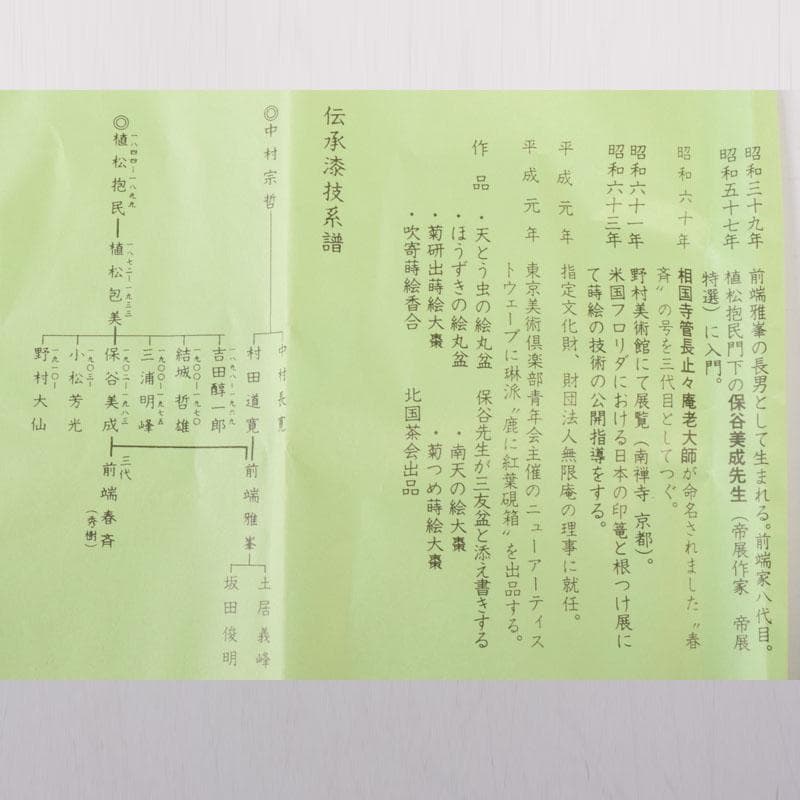 昭和三十九年 前端雅峯の長男として生まれる。前端家八代目。
昭和五十七年 植松抱民門下の保谷美成先生（帝展作家 帝展
特選）に入門。
昭和六十年 相国寺管長止々庵老大師が命名されました〝春
斉〟の号を三代目としてつぐ。
昭和六十一年 野村美術館にて展覧（南禅寺 京都）。
昭和六十三年 米国フロリダにおける日本の印篭と根つけ展に
て蒔絵の技術の公開指導をする。
平成元年 指定文化財、財団法人無限庵の理事に就任。
平成元年 東京美術倶楽部青年会主催のニューアーティス
トウェーブに琳派〝鹿に紅葉硯箱〟を出品する。
作品 ・天とう虫の絵丸盆 保谷先生が三友盆と添え書きする
・ほうずきの絵丸盆 ・南天の絵大棗
・菊研出蒔絵大棗 ・菊つめ蒔絵大棗
・吹寄蒔絵香合 北国茶会出品
伝承漆技系譜
◎中村宗哲
中村長寛
村田道寛
前端雅峯
土居義峰
坂田俊明
◎植松抱民 一八四四―一八九九
植松包美 一八七二―一九三三
吉田醇一郎 一八九八―一九六九
結城哲雄 一九〇〇―一九七〇
三浦明峰 一九〇〇―一九七五
保谷美成 一九〇二―一九八三
三代 前端春斉（秀樹）
小松芳光 一九〇三―
野村大仙 一九一〇―